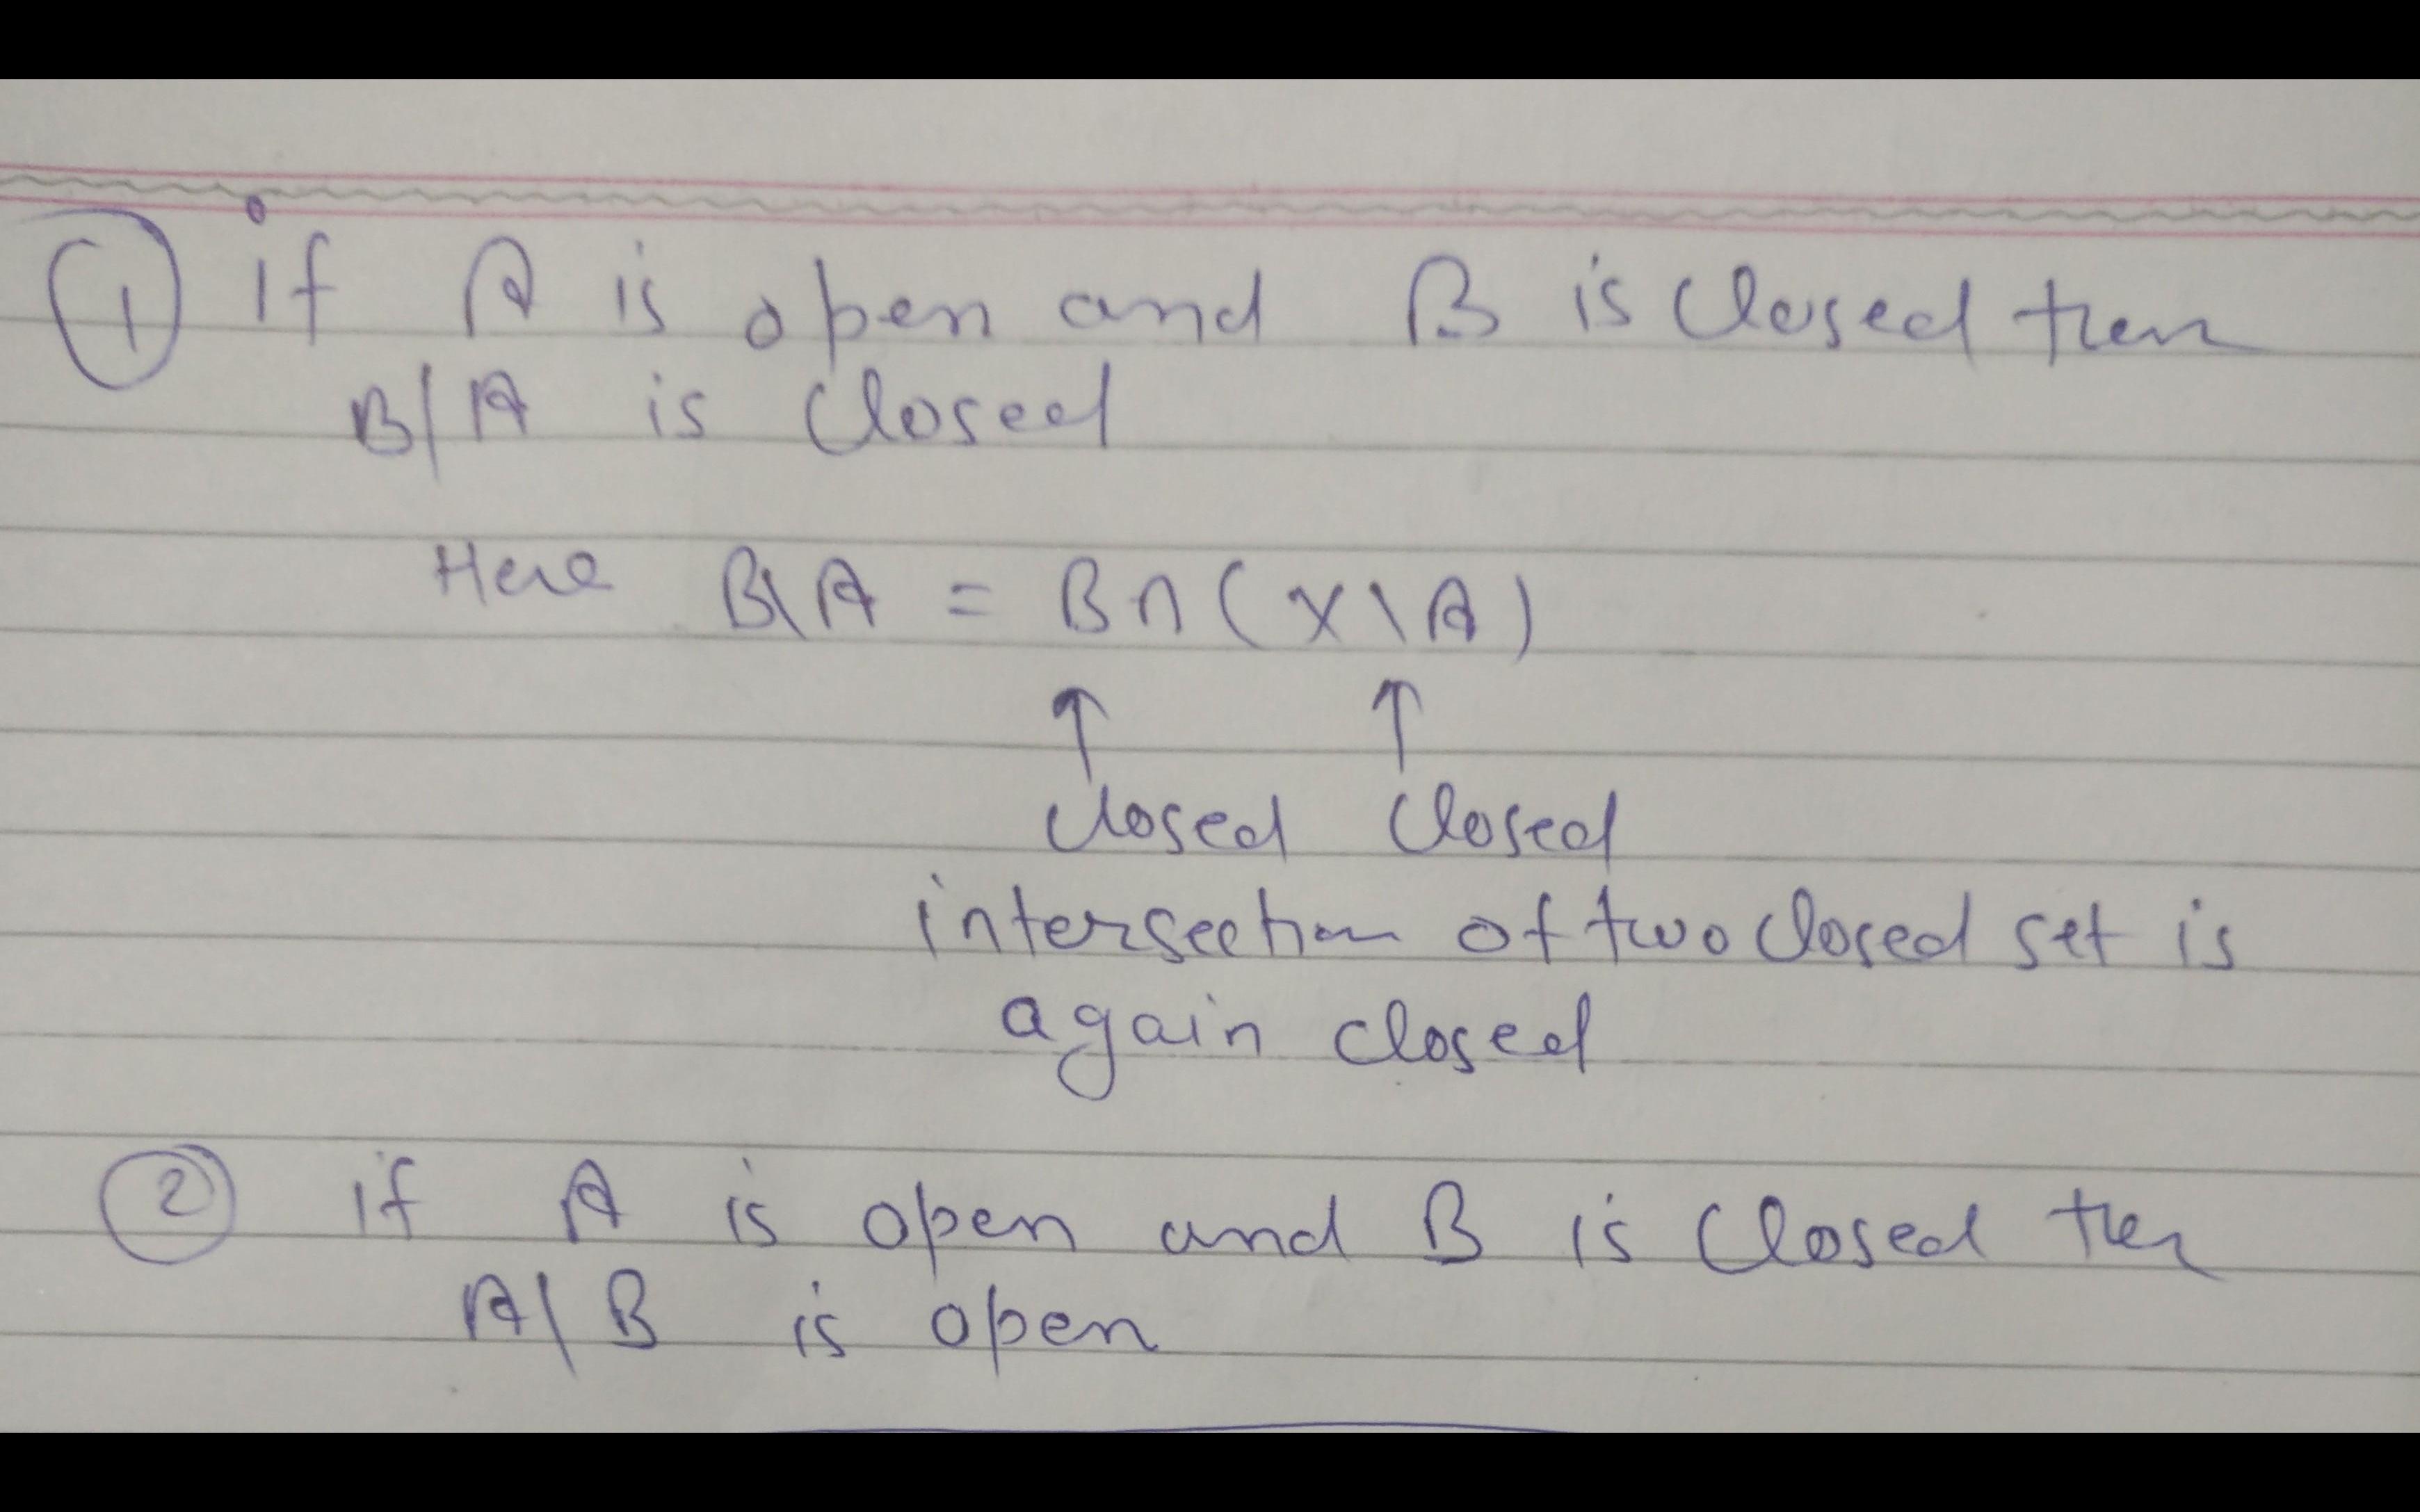 ① if A is open and B is closed then
B/A is closed
Here B\A = B∩(X\A)
↑ ↑
closed closed
intersection of two closed set is
again closed
② if A is open and B is closed then
A\B is open